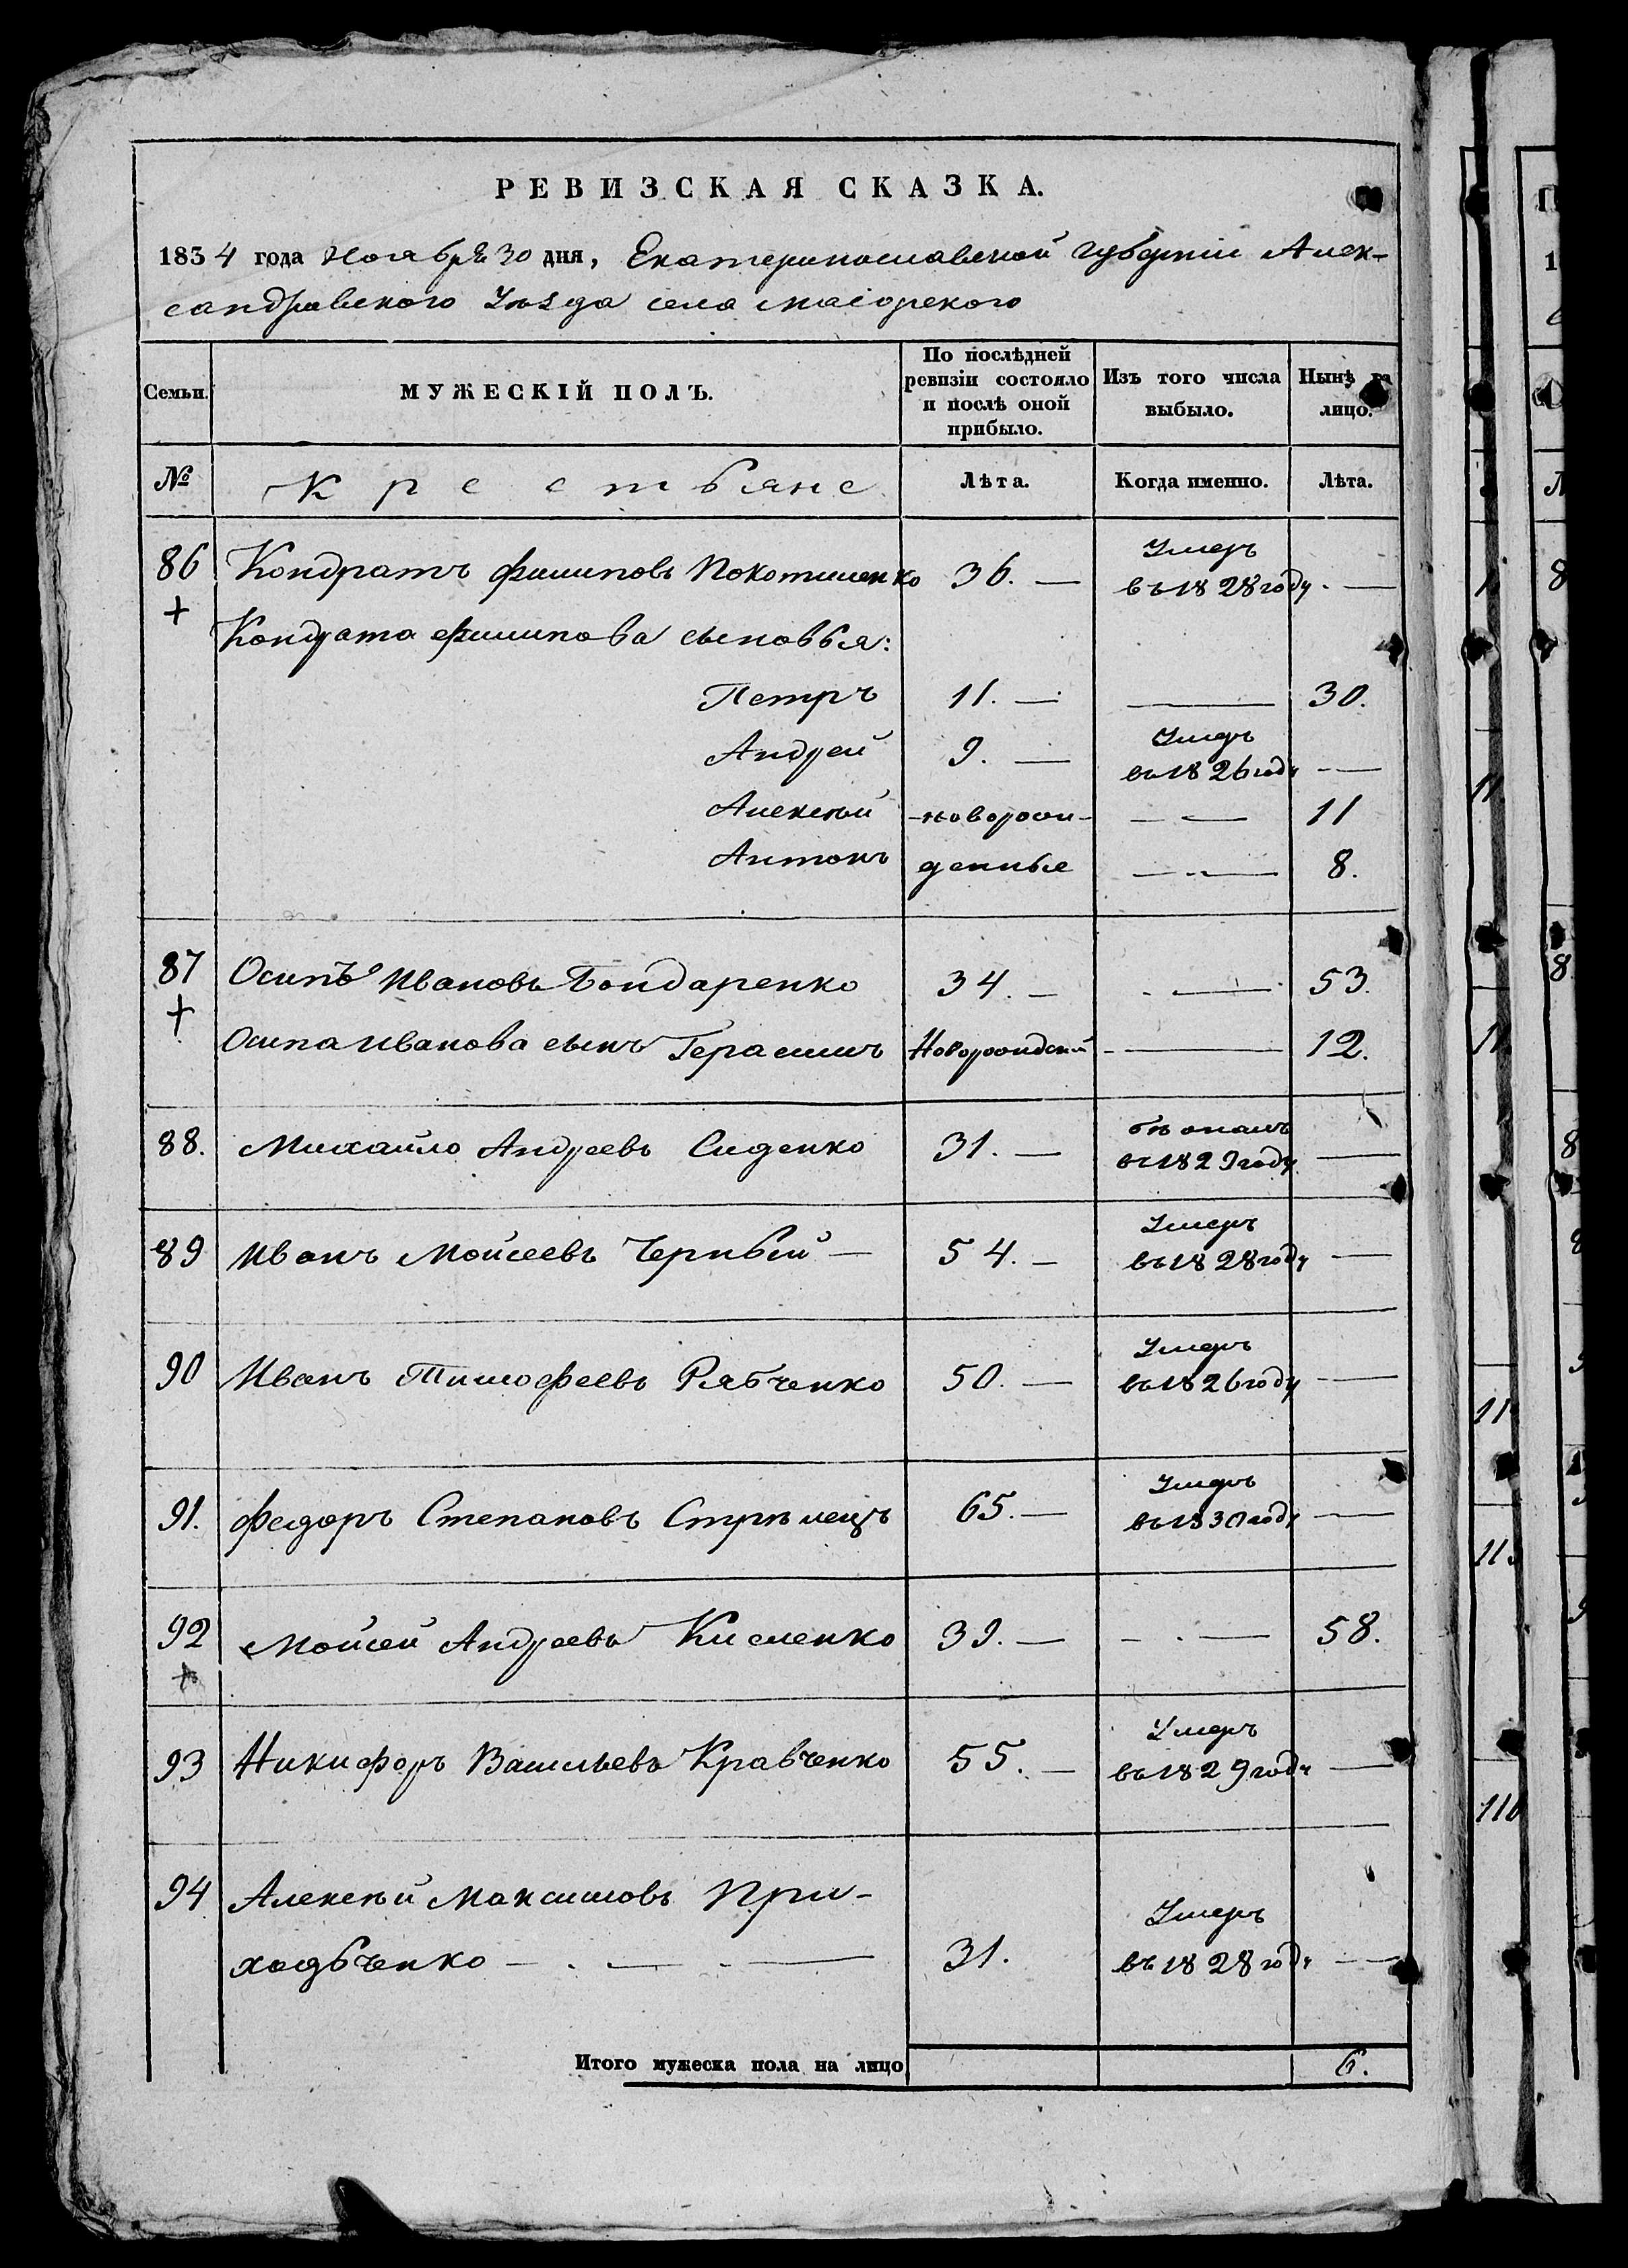 РЕВИЗСКАЯ СКАЗКА.
1834 года Ноября 30 дня, Екатеринославской Губерніи Алек-
сандровского Уѣзда села Маіорского
Семьи. МУЖЕСКІЙ ПОЛЪ. По послѣдней ревизіи состояло и послѣ оной прибыло. Изъ того числа выбыло. Нынѣ на лицо.
№ Крестьяне Лѣта. Когда именно. Лѣта.
86 Кондратъ Филиповъ Покотиленко 36. — Умеръ въ 1828 году. —
Кондрата Филипова сыновья:
Петръ 11. — — 30.
Андрей 9. — Умеръ въ 1826 году —
Алексѣй новорож- — — 11
Антонъ денные — — 8.
87 Осипъ Ивановъ Бондаренко 34. — — 53.
Осипа Иванова сынъ Герасимъ Новорожденый — 12.
88. Михайло Андреевъ Сиденко 31. — бѣжалъ въ 1829 году —
89 Иванъ Мойсеевъ Черный — 54. — Умеръ въ 1828 году —
90 Иванъ Тимофеевъ Рябченко 50. — Умеръ въ 1826 году —
91. Федоръ Степановъ Стрѣлецъ 65. — Умеръ въ 1830 году —
92 Мойсей Андреевъ Кисленко 39. — — 58.
93 Никифоръ Васильевъ Кравченко 55. — Умеръ въ 1829 году —
94 Алексѣй Максимовъ При-
ходьченко — 31. Умеръ въ 1828 году —
Итого мужеска пола на лицо 6.